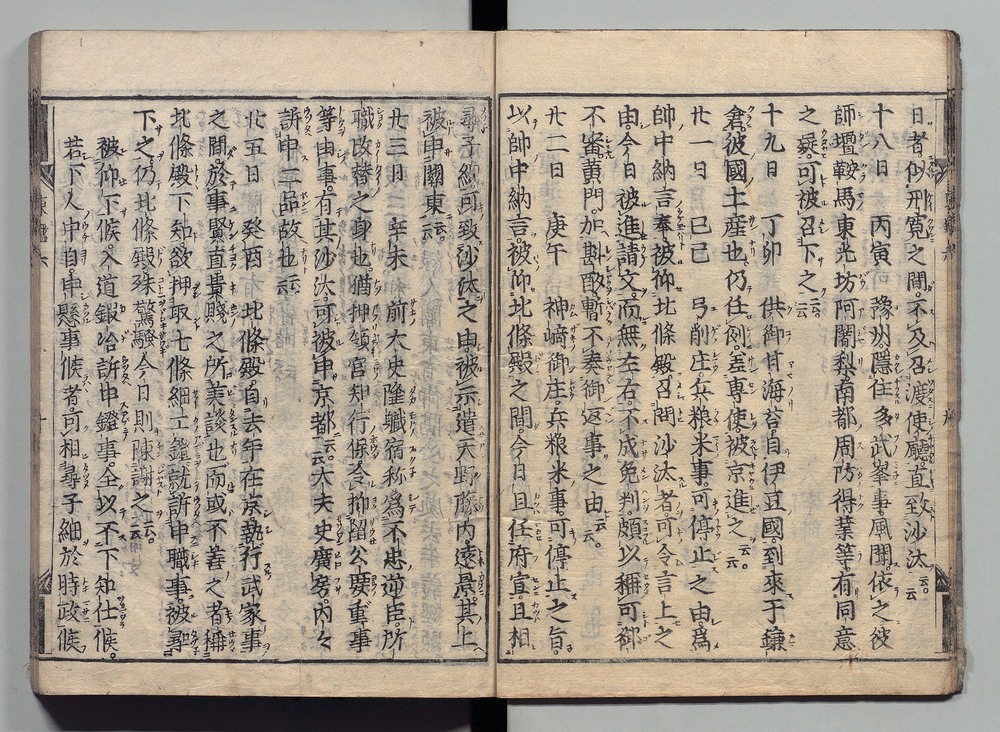 日者似刑寛之間。不及召渡使廳。直致沙汰云云。
十八日　丙寅　豫州隱住多武峯事風聞。依之彼
師壇鞍馬東光坊阿闍梨南都周防得業等有同意
之疑。可被召下之云云。
十九日　丁卯　供御甘海苔自伊豆國。到來于鎌
倉。彼國土産也。仍任例差專使。被京進之云云。
廿一日　己巳　弓削庄。兵粮米事。可停止之由。爲
帥中納言奉被仰北條殿。召問沙汰者可令言上之
由。今日被進請文。而無左右。不成免判。頗以稱可御
不審。黄門。加斟酌暫不奏御返事之由云云。
廿二日　庚午　神﨑御庄。兵粮米事。可停止之旨。
以帥中納言被仰北條殿之間。今日且任府宣且相
尋子細可致沙汰之由被示遣天野藤内遠景。其上
被申關東云云。
廿三日　辛未　前大史隆職宿祢爲不忠逆臣。所
職改替之身也。猶押領官知行保。令抑留公要重事
等由事。有其沙汰。可被申京都云云。大夫史廣房。内々
訴申二品故也云云。
廿五日　癸酉　北條殿自去年在京。執行武家事
之間。於事賢直。貴賤之所美談也。而或不善之者稱
北條殿下知。欲押取七條細工鐙。就訴申職事。被尋
下之。仍北條殿殊驚騷。今日則陳謝之云云。
被仰下候。入道鍛冶訴申鐙事。全以不下知仕候。
若下人中自由懸事候者。可相尋子細於時政候